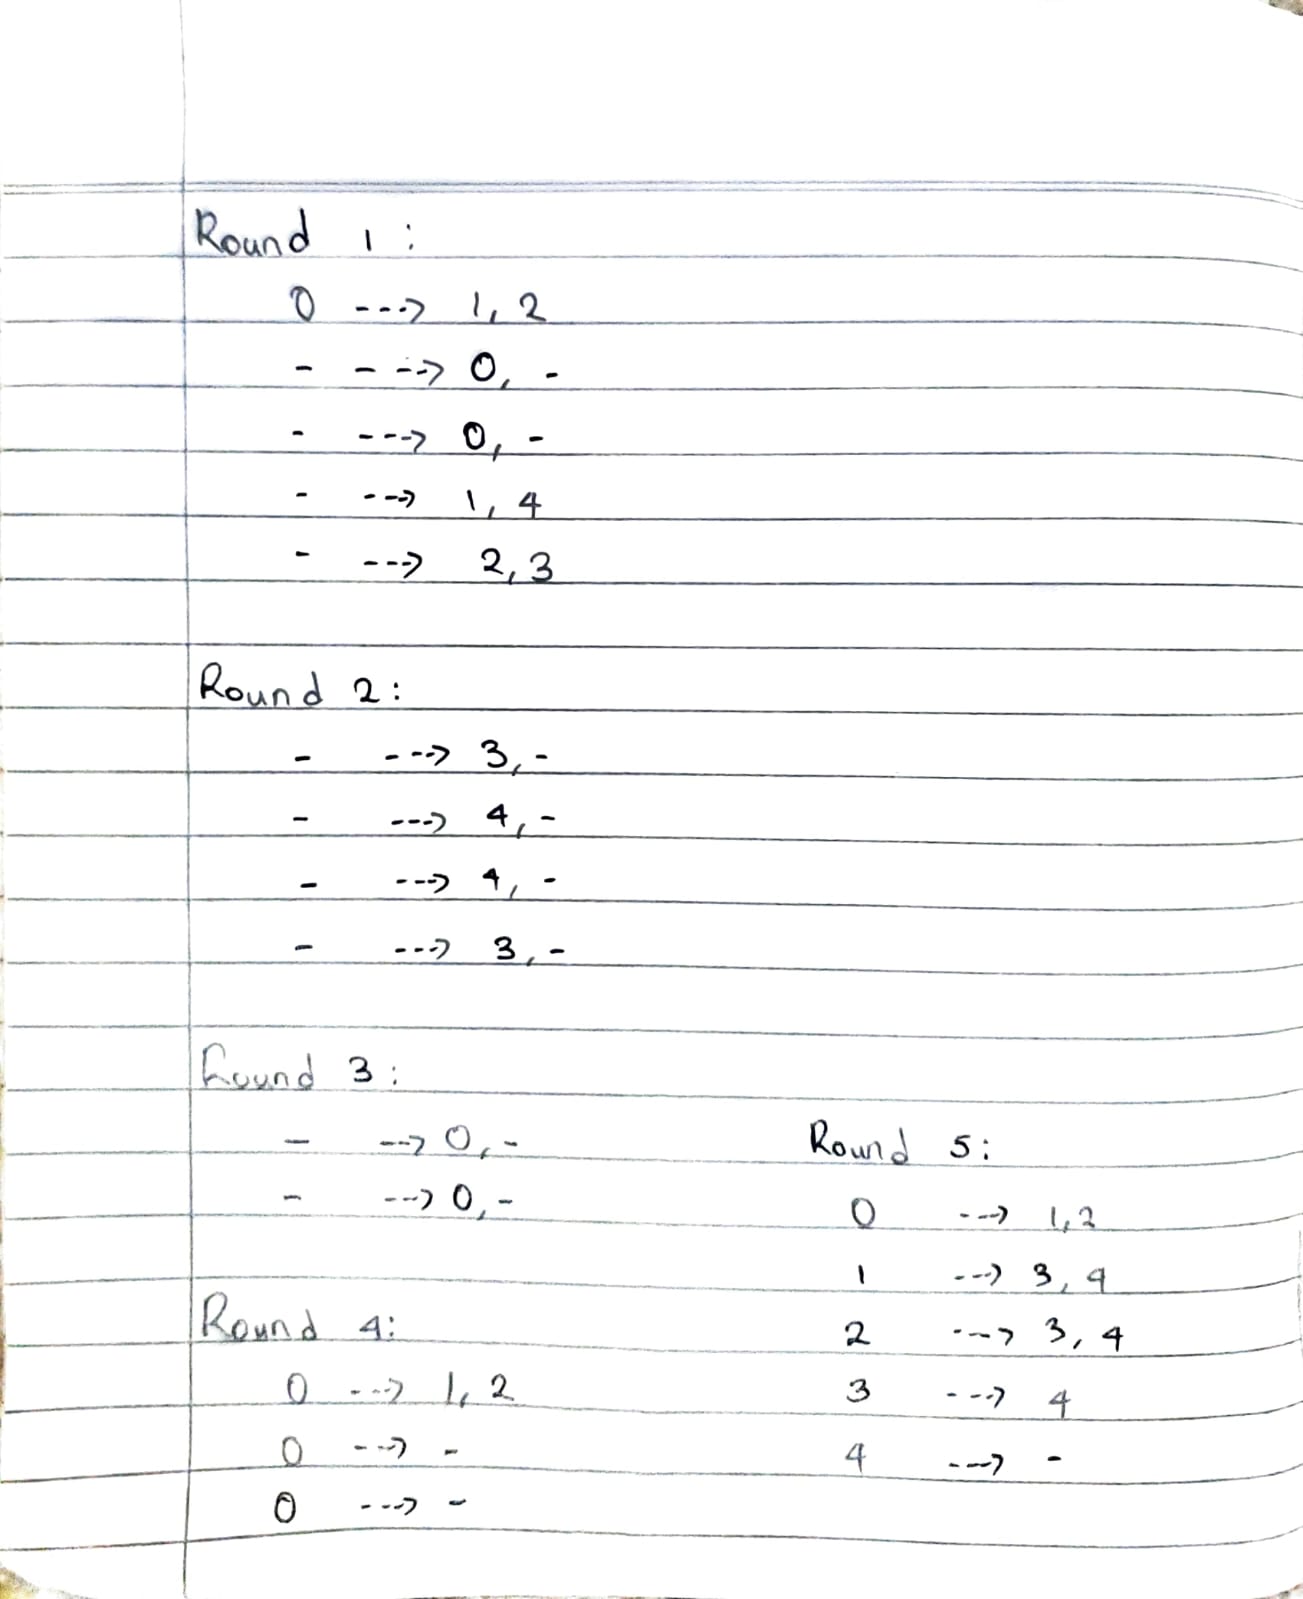 Round 1:
0 ---> 1, 2
- ---> 0, -
- ---> 0, -
- ---> 1, 4
- ---> 2, 3
Round 2:
- ---> 3, -
- ---> 4, -
- ---> 4, -
- ---> 3, -
Round 3:
- --> 0, -
- ---> 0, -
Round 4:
0 ---> 1, 2
0 ---> -
0 ---> -
Round 5:
0 ---> 1, 2
1 ---> 3, 4
2 ---> 3, 4
3 ---> 4
4 ---> -